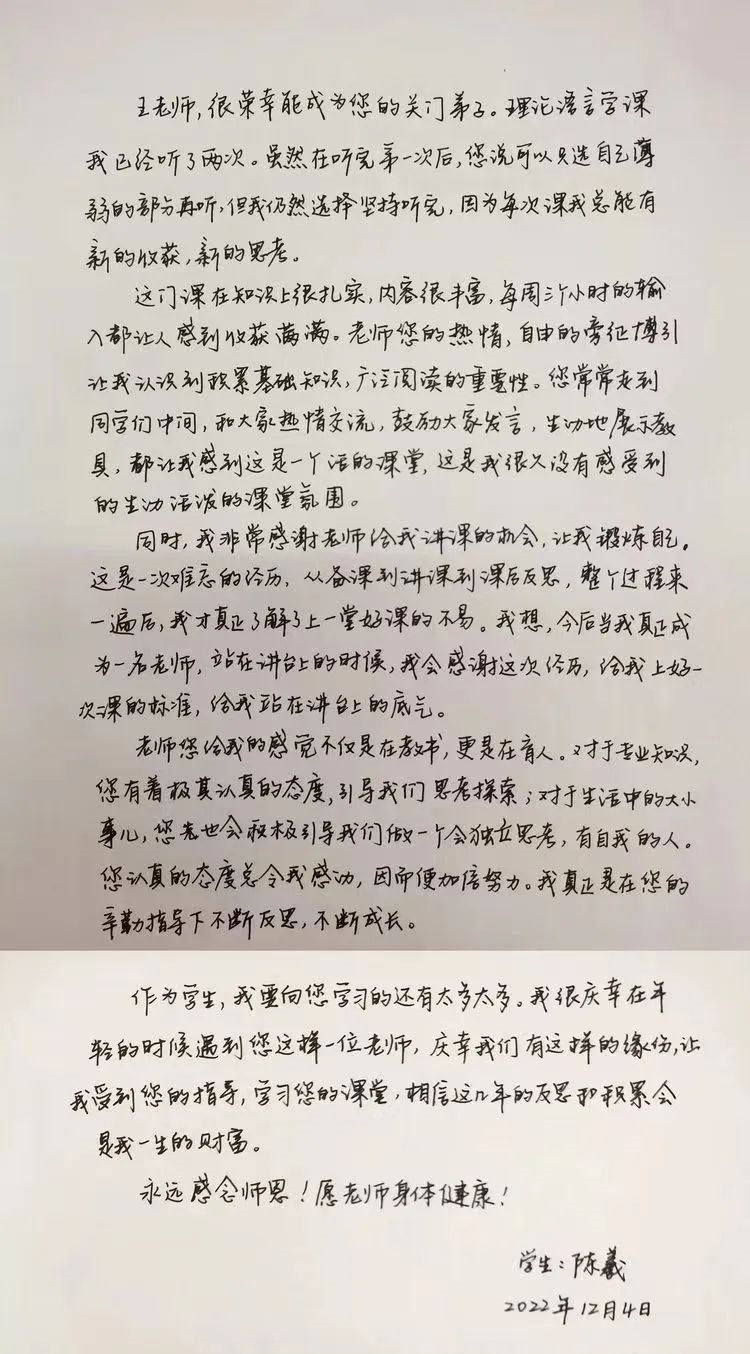 王老师,很荣幸能成为您的关门弟子。理论语言学课
我已经听了两次。虽然在听完第一次后,您说可以只选自己薄
弱的部分再听,但我仍然选择坚持听完,因为每次课我总能有
新的收获,新的思考。
这门课在知识上很扎实,内容很丰富,每周三个小时的输
入都让人感到收获满满。老师您的热情,自由的旁征博引
让我认识到积累基础知识,广泛阅读的重要性。您常常走到
同学们中间,和大家热情交流,鼓励大家发言,生动地展示教
具,都让我感到这是一个活的课堂,这是我很久没有感受到
的生动活泼的课堂氛围。
同时,我非常感谢老师给我讲课的机会,让我锻炼自己。
这是一次难忘的经历,从备课到讲课到课后反思,整个过程来
一遍后,我才真正了解了上一堂好课的不易。我想,今后当我真正成
为一名老师,站在讲台上的时候,我会感谢这次经历,给我上好一
次课的标准,给我站在讲台上的底气。
老师您给我的感觉不仅是在教书,更是在育人。对于专业知识,
您有着极其认真的态度,引导我们思考探索;对于生活中的大小
事儿,您也会积极引导我们做一个会独立思考,有自我的人。
您认真的态度总令我感动,因而便加倍努力。我真正是在您的
辛勤指导下不断反思,不断成长。
作为学生,我要向您学习的还有太多太多。我很庆幸在年
轻的时候遇到您这样一位老师,庆幸我们有这样的缘份,让
我受到您的指导,学习您的课堂,相信这几年的反思和积累会
是我一生的财富。
永远感念师恩!愿老师身体健康!
学生:陈羲
2022年12月4日